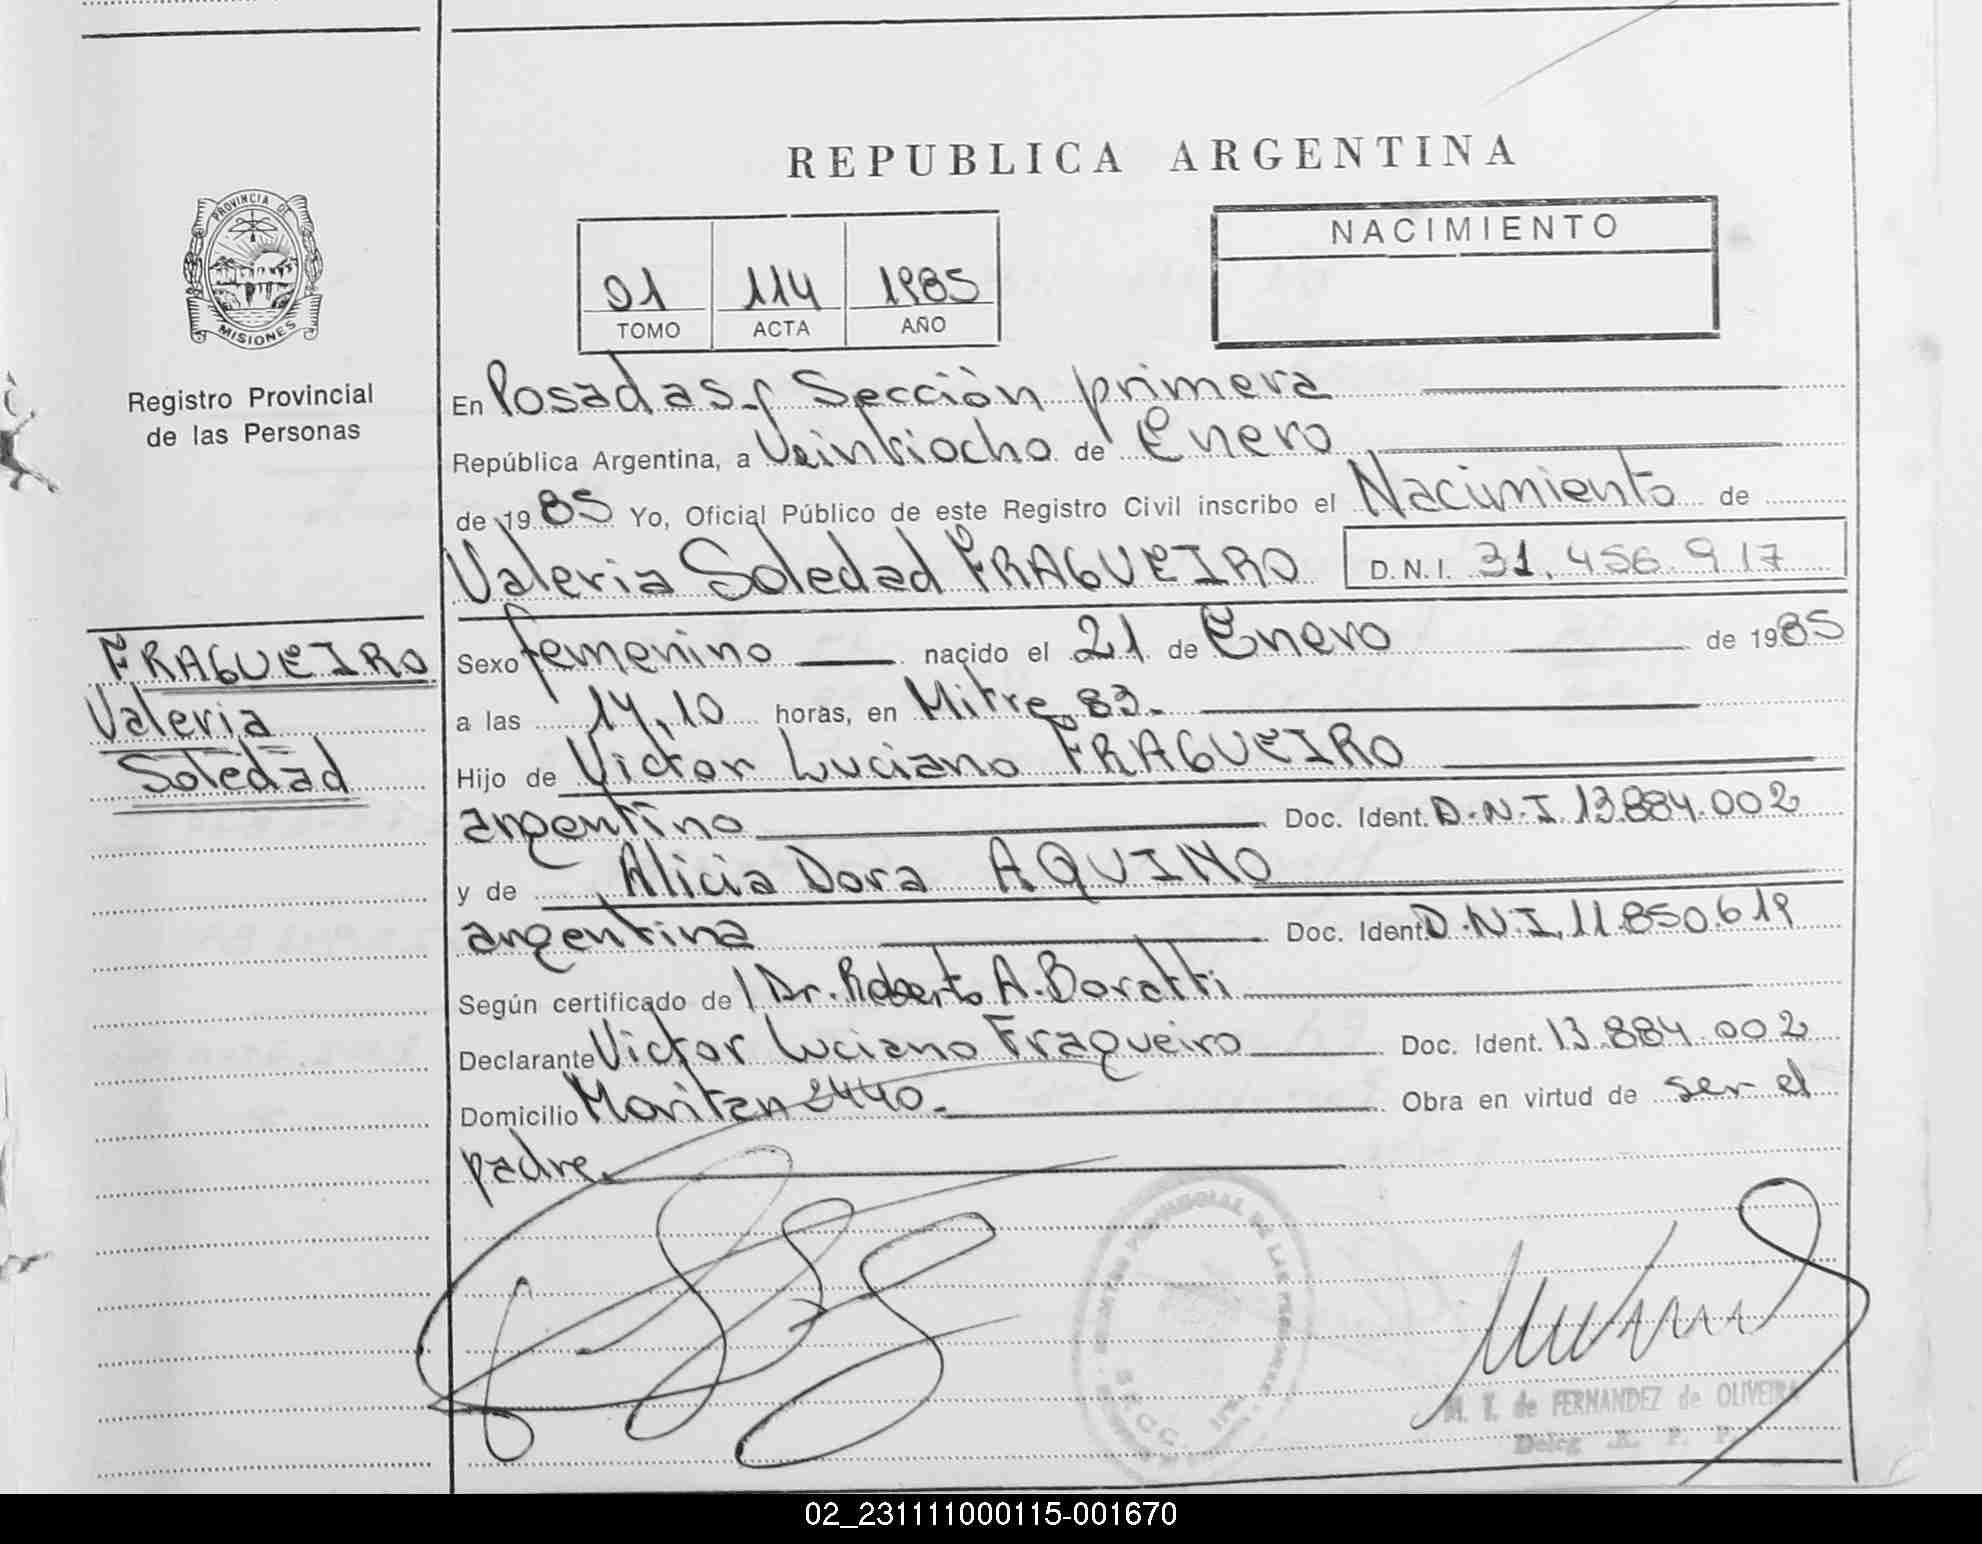 REPUBLICA ARGENTINA
PROVINCIA DE
MISIONES
Registro Provincial
de las Personas
NACIMIENTO
01 114 1985
TOMO ACTA AÑO
En Posadas, Sección primera
República Argentina, a Veintiocho de Enero
de 1985 Yo, Oficial Público de este Registro Civil inscribo el Nacimiento de
Valeria Soledad FRAGUEIRO D.N.I. 31.456.917
FRAGUEIRO
Valeria
Soledad
Sexo femenino nacido el 21 de Enero de 1985
a las 14,10 horas, en Mitre 83.
Hijo de Victor Luciano FRAGUEIRO
argentino Doc. Ident. D.N.I. 13.884.002
y de Alicia Dora AQUINO
argentina Doc. Ident. D.N.I. 11.850.619
Según certificado de Dr. Roberto A. Boratti
Declarante Victor Luciano Fragueiro Doc. Ident. 13.884.002
Domicilio 2440. Obra en virtud de ser el
padre.
REGISTRO PROVINCIAL DE LAS PERSONAS
SECC. 1ra
M. T. de FERNANDEZ de OLIVEIRA
Deleg. R. P. P.
02_231111000115-001670